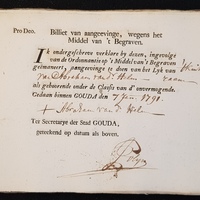 Pro Deo. Billiet van aangeevinge, wegens het
Middel van 't Begraven.
IK ondergeschreve verklare by dezen, ingevolge
van de Ordonnantie op 't Middel van 't Begraven
geëmaneert, aangevinge te doen van het Lyk van
Abraham van d' Helm
als gehoorende onder de Classis van d' onvermogende.
Gedaan binnen GOUDA den 7 Jan. 1791.
Abraham van d' Helm
Ter Secretarye der Stad GOUDA,
geteekend op datum als boven.